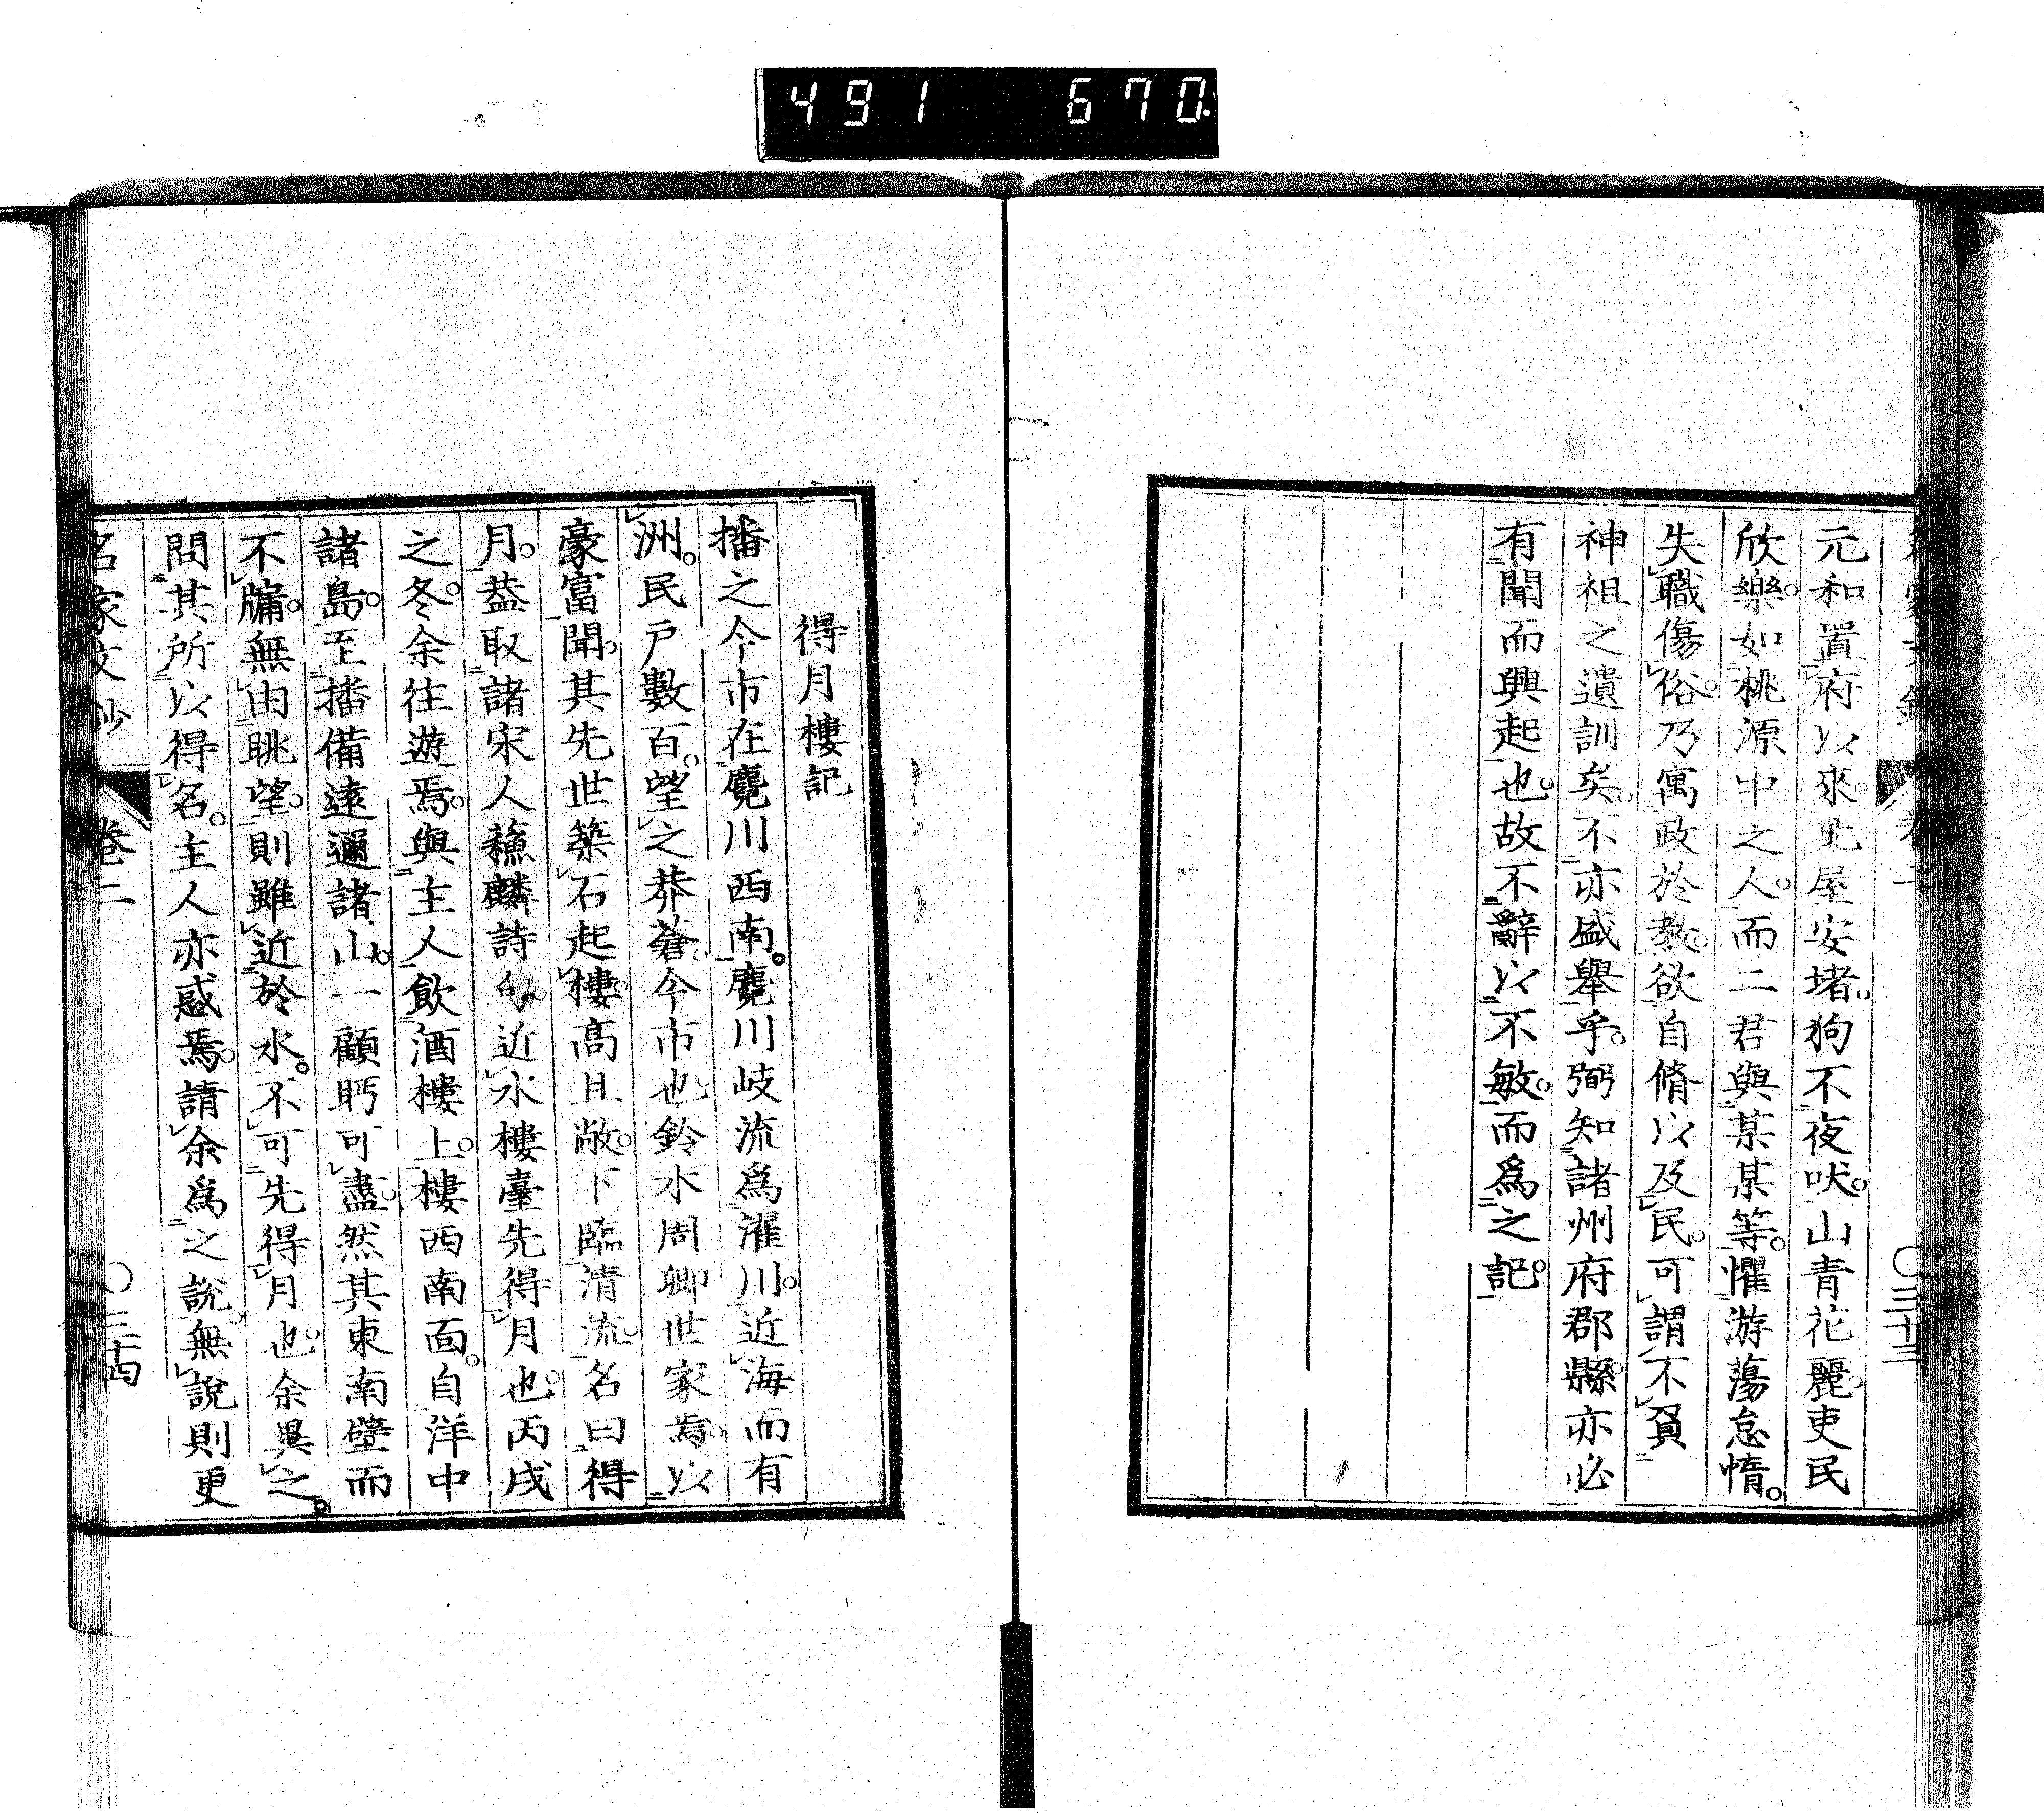 491 670.
元和置府以來比屋安堵。狗不夜吠。山青花麗。吏民
欣樂。如桃源中之人。而二君與某某等。懼游蕩怠惰。
失職傷俗。乃寓政於教。欲自脩以及民。可謂不負
神祖之遺訓矣。不亦盛舉乎。弼知諸州府郡縣。亦必
有聞而興起也。故不辭以不敏。而爲之記。
〇三十三
得月樓記
播之今市在麑川西南。麑川岐流爲濯川。近海而有
洲。民戶數百。望之莽蒼。今市也鈴木周卿世家焉。以
豪富聞。其先世築石起樓。高且敞。下臨清流。名曰得
月。葢取諸宋人蘓麟詩句。近水樓臺先得月也。丙戌
之冬。余往遊焉。與主人飲酒樓上。樓西南面。自洋中
諸島。至播備遠邇諸山。一顧眄可盡。然其東南壁而
不牖。無由眺望。則雖近於水。不可先得月也。余異之。
問其所以得名。主人亦惑焉。請余爲之說。無說則更
名家文抄 卷二 〇三十四